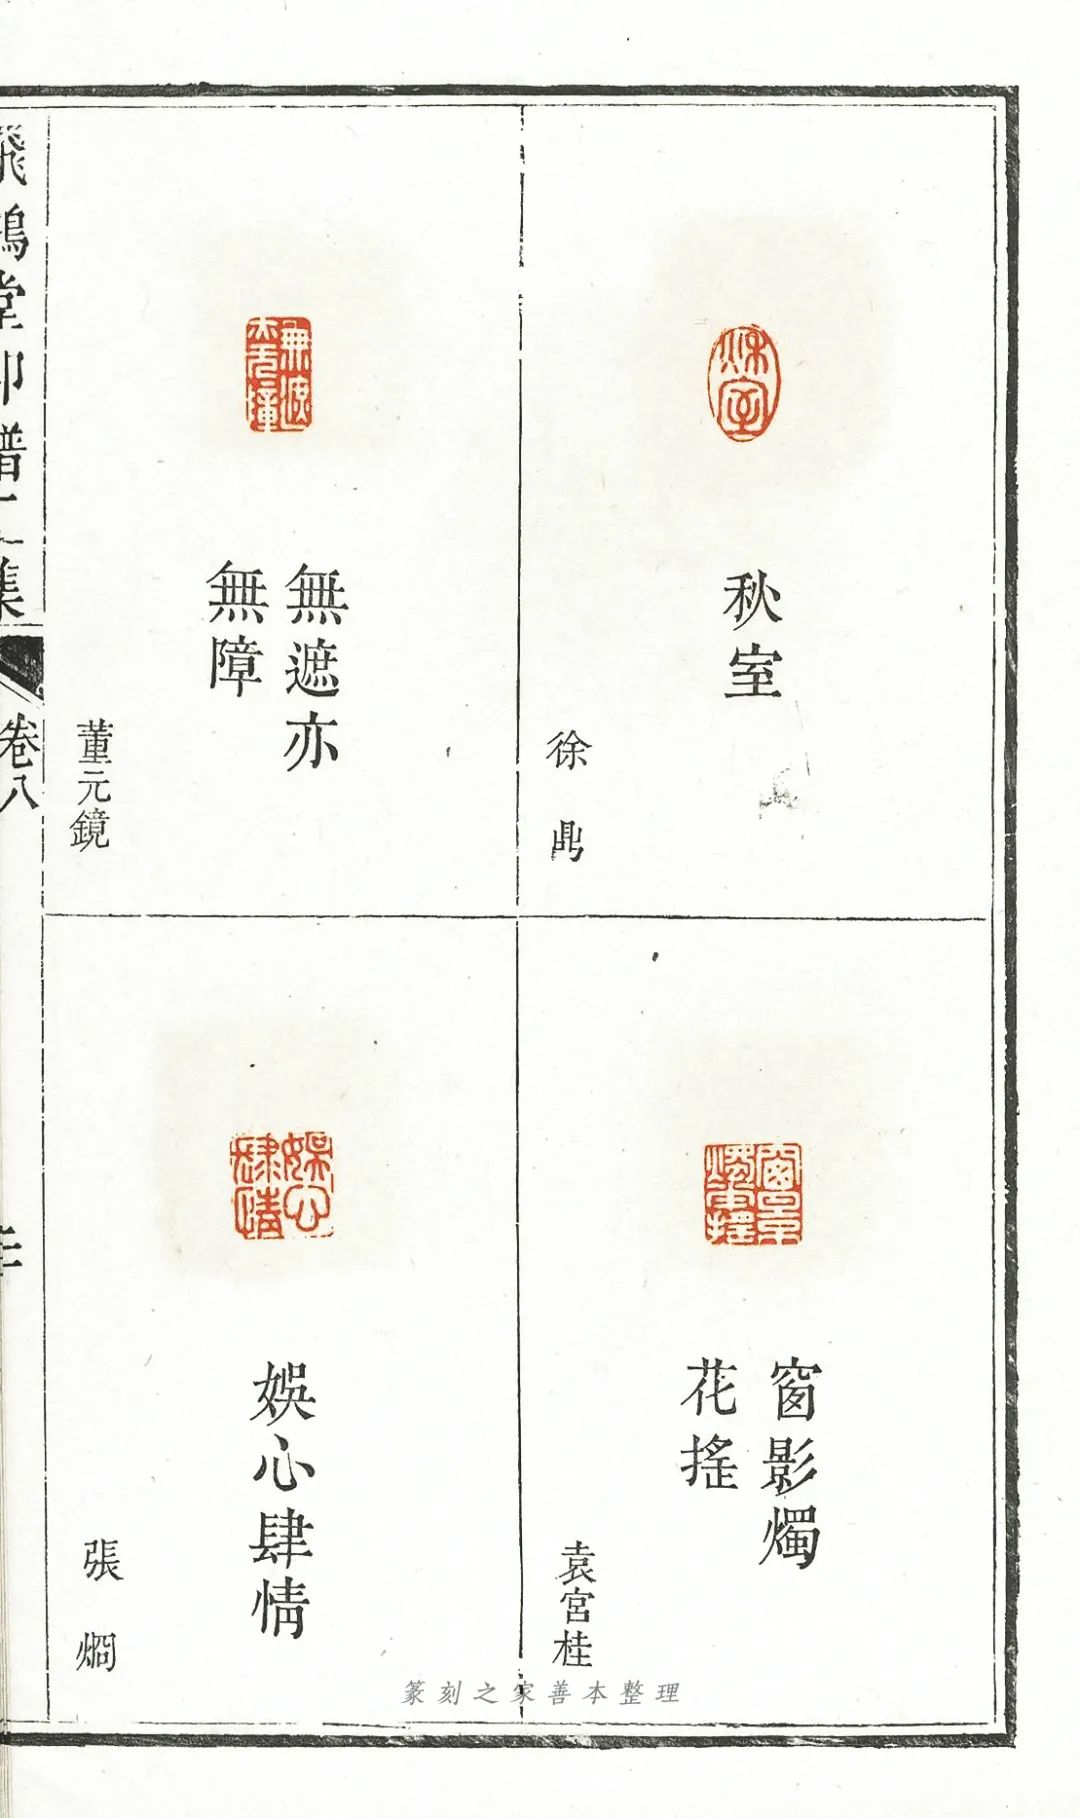 秋室
徐鼎
窗影燭
花搖
袁宮桂
無遮亦
無障
董元鏡
娛心肆情
張燜
飛鴻堂印譜二集
卷八
篆刻之家善本整理